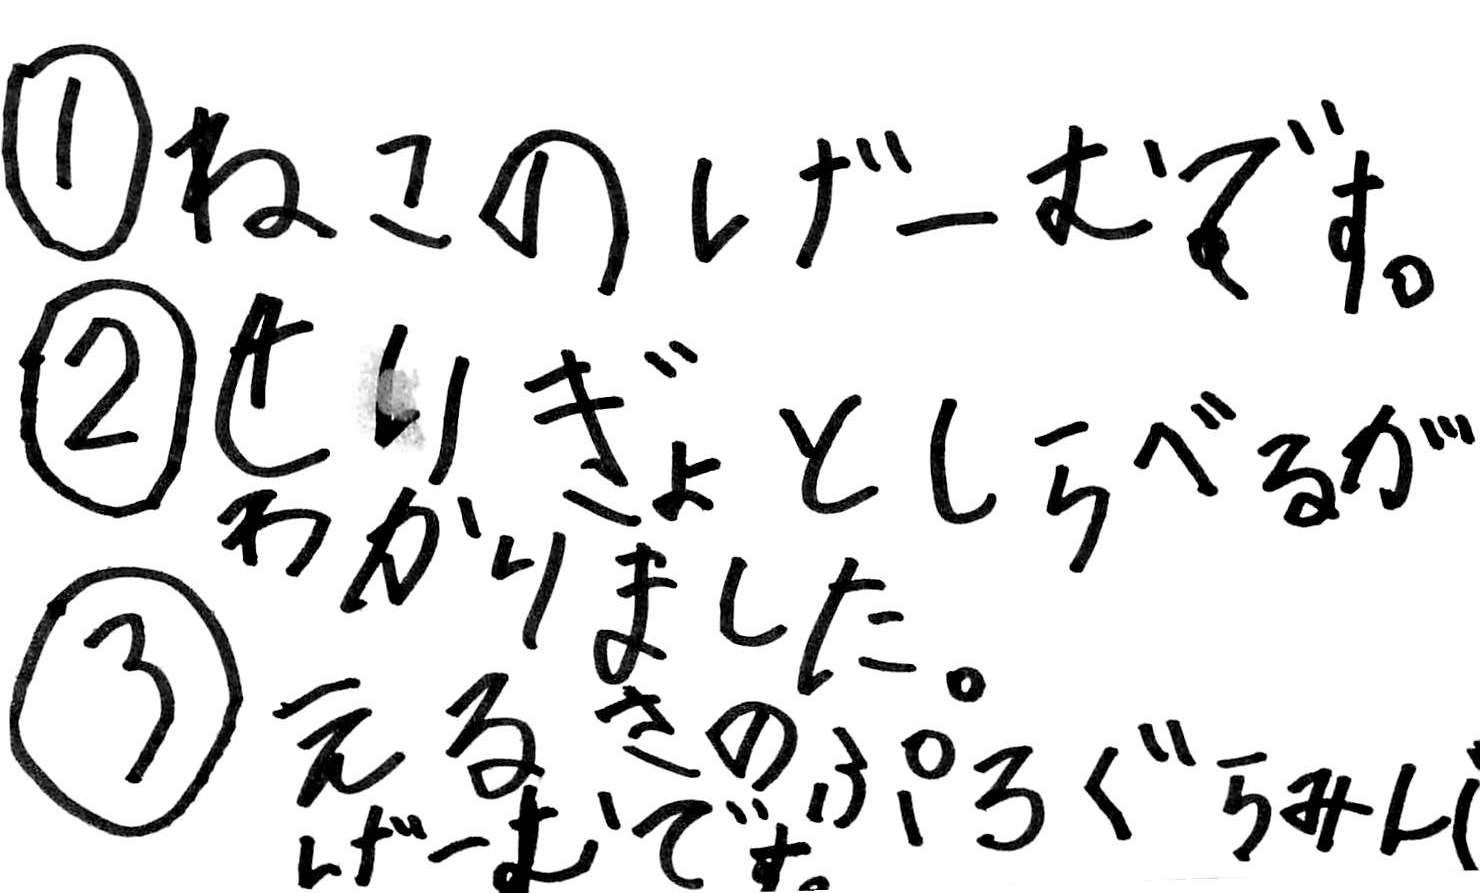 ①ねこのげーむです。
②せいぎょとしらべるが
わかりました。
③えるさのぷろぐらみん
げーむです。